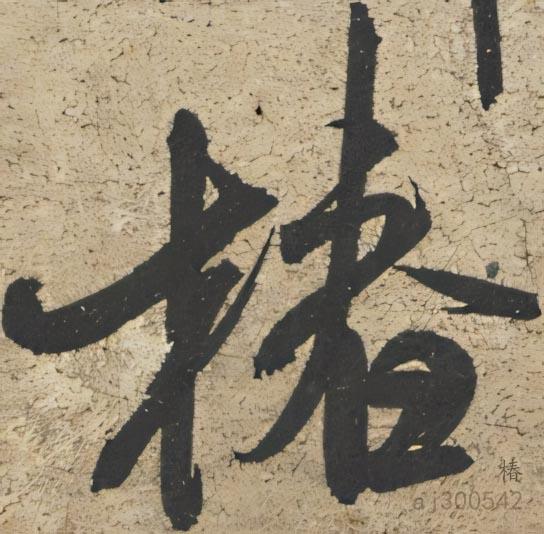 椿
椿
aj300542